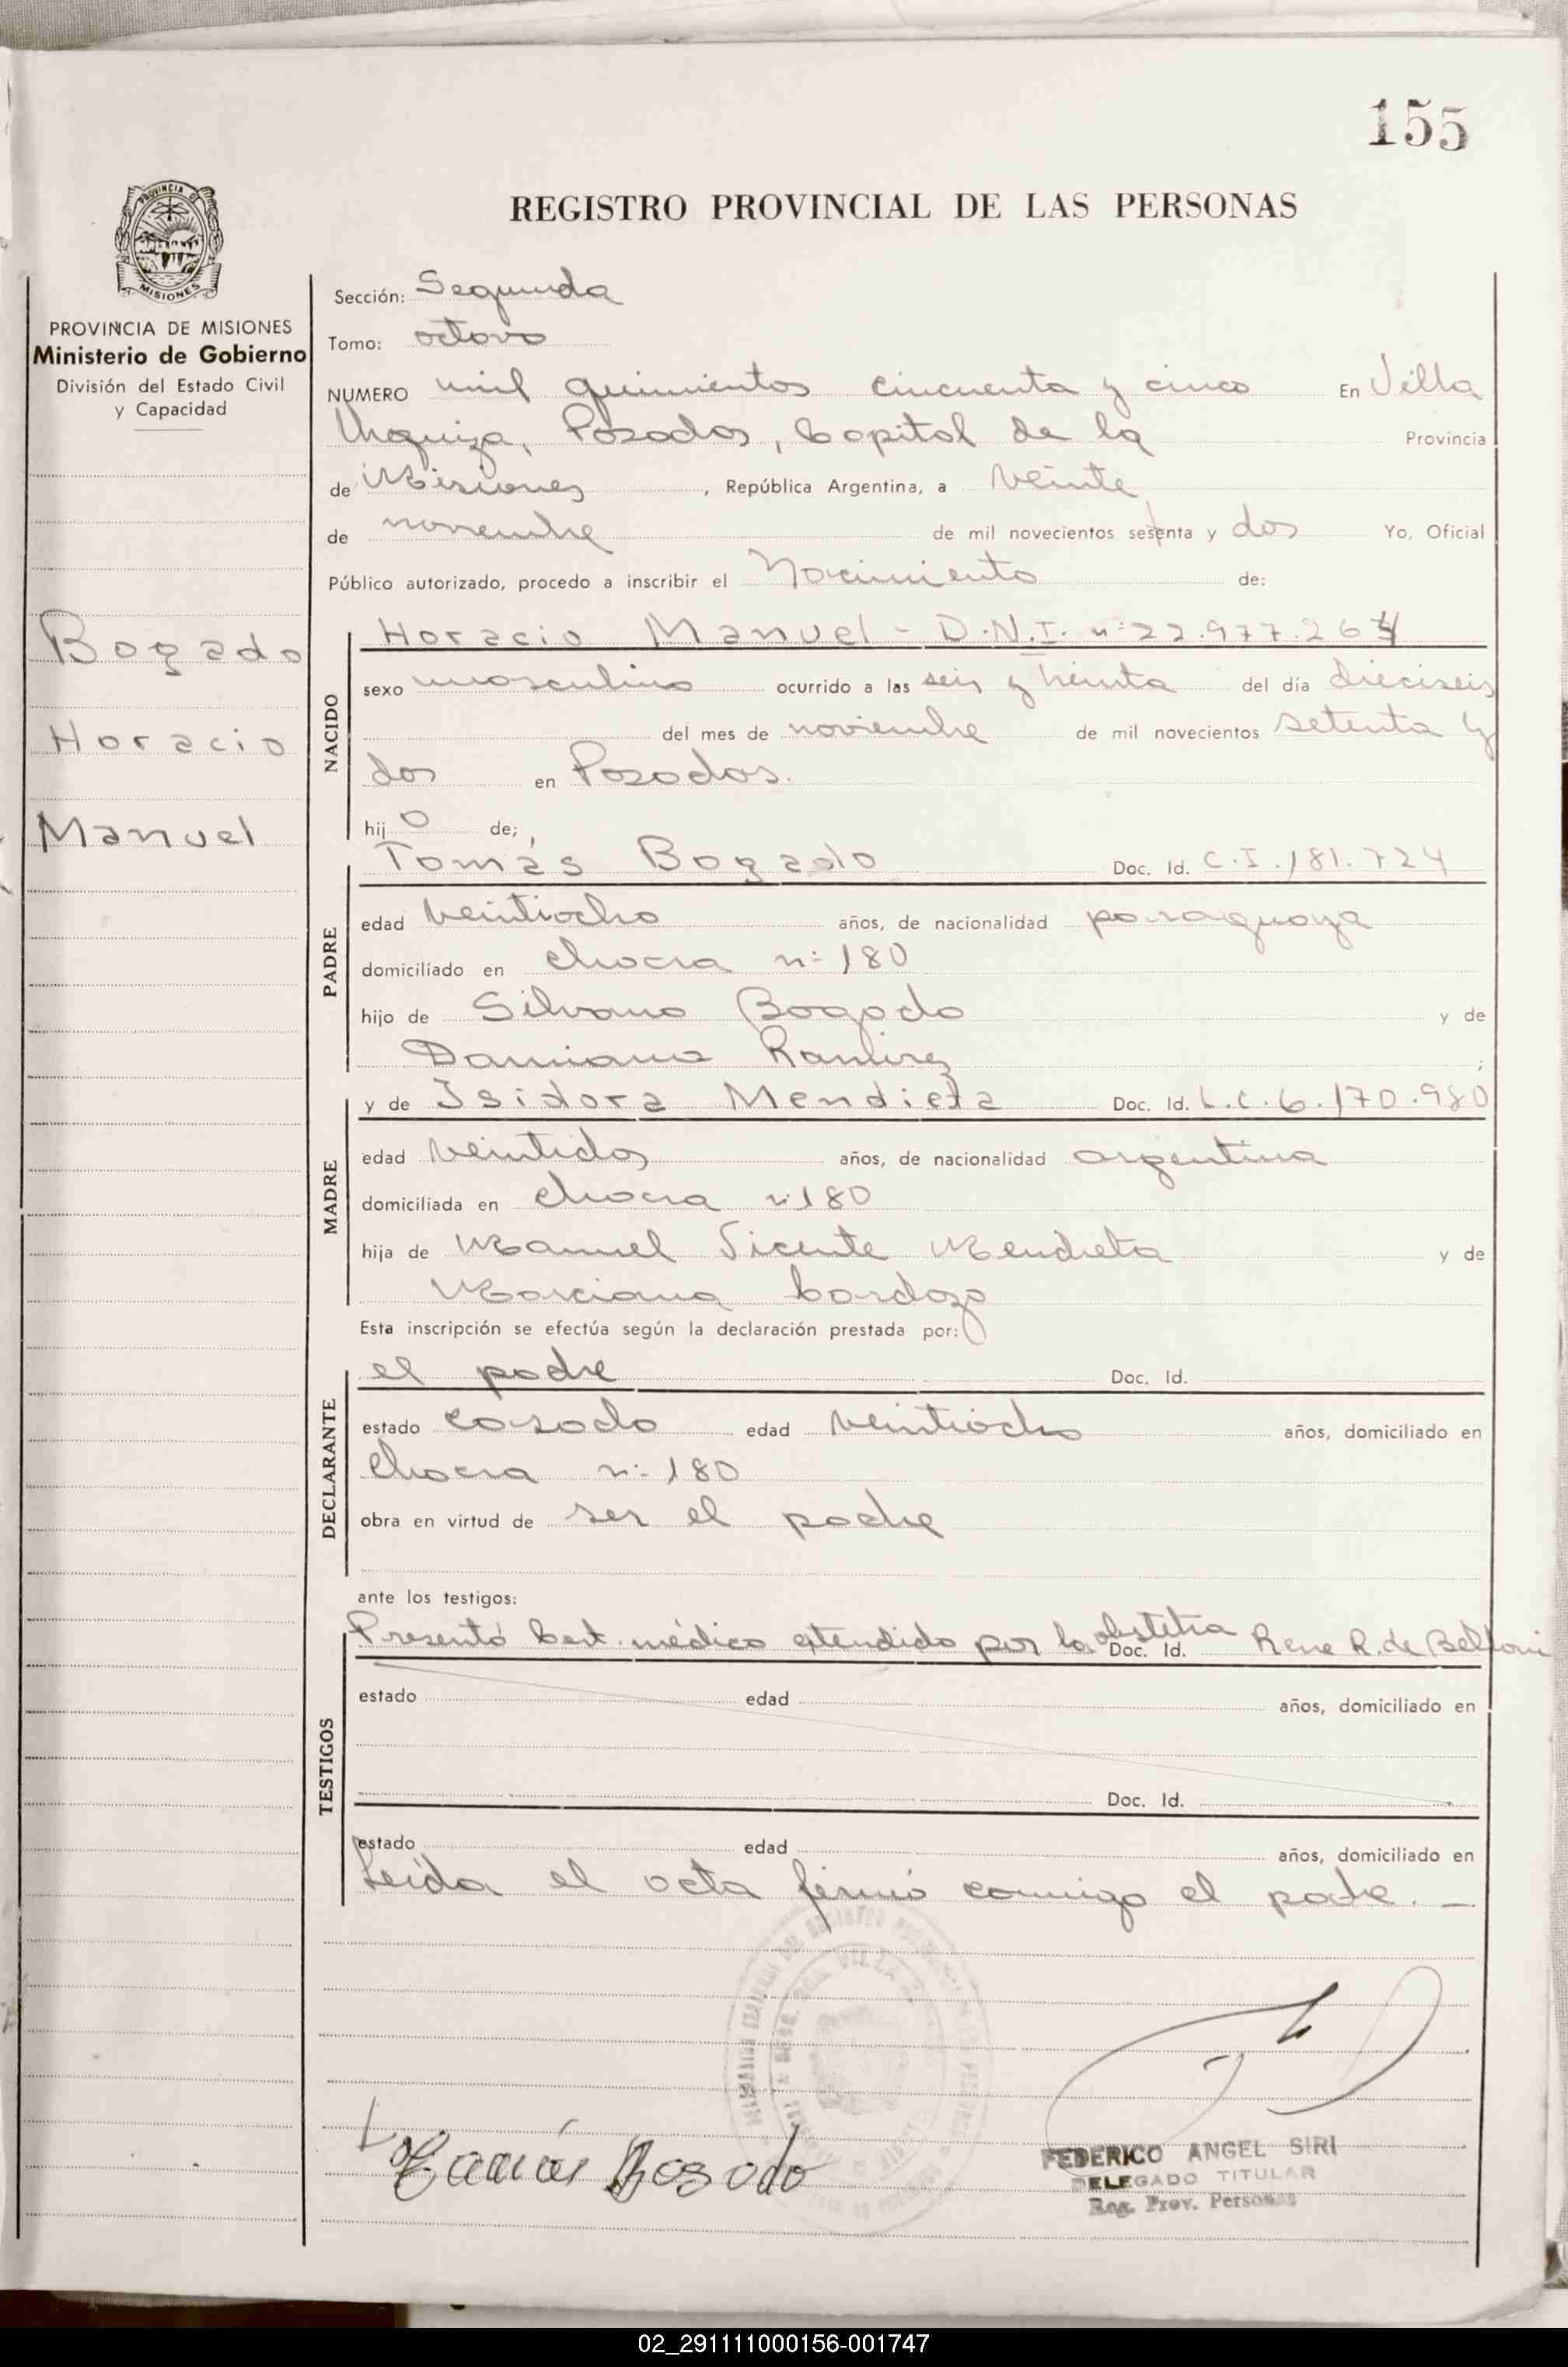 155
REGISTRO PROVINCIAL DE LAS PERSONAS
PROVINCIA DE MISIONES
MISIONES
PROVINCIA DE MISIONES
Ministerio de Gobierno
División del Estado Civil
y Capacidad
Bogado
Horacio
Manuel
Sección: Segunda
Tomo: octavo
NUMERO mil quinientos cincuenta y cinco En Villa
Urquiza, Posadas, Capital de la Provincia
de Misiones, República Argentina, a veinte
de noviembre de mil novecientos setenta y dos Yo, Oficial
Público autorizado, procedo a inscribir el Nacimiento de:
NACIDO
Horacio Manuel - D.N.I. nº 22.977.264
sexo masculino ocurrido a las seis y treinta del día dieciseis
del mes de noviembre de mil novecientos setenta y
dos en Posadas.
hijo de;
PADRE
Tomás Bogado Doc. Id. C.I. 181.724
edad veintiocho años, de nacionalidad paraguaya
domiciliado en chacra nº 180
hijo de Silvano Bogado y de
Damiana Ramirez ;
MADRE
y de Isidora Mendieta Doc. Id. L.C. 6.170.980
edad veintidos años, de nacionalidad argentina
domiciliada en chacra nº 180
hija de Manuel Vicente Mendieta y de
Marciana Cardozo
Esta inscripción se efectúa según la declaración prestada por:
DECLARANTE
el padre Doc. Id.
estado casado edad veintiocho años, domiciliado en
chacra nº 180
obra en virtud de ser el padre
ante los testigos:
TESTIGOS
Presentó Cert. médico extendido por la obstetra Doc. Id. Rene R. de Belloni
estado edad años, domiciliado en
Doc. Id.
estado edad años, domiciliado en
Leida el acta firmó conmigo el padre. —
Tomás Bogado
FEDERICO ANGEL SIRI
DELEGADO TITULAR
Reg. Prov. Personas
02_291111000156-001747